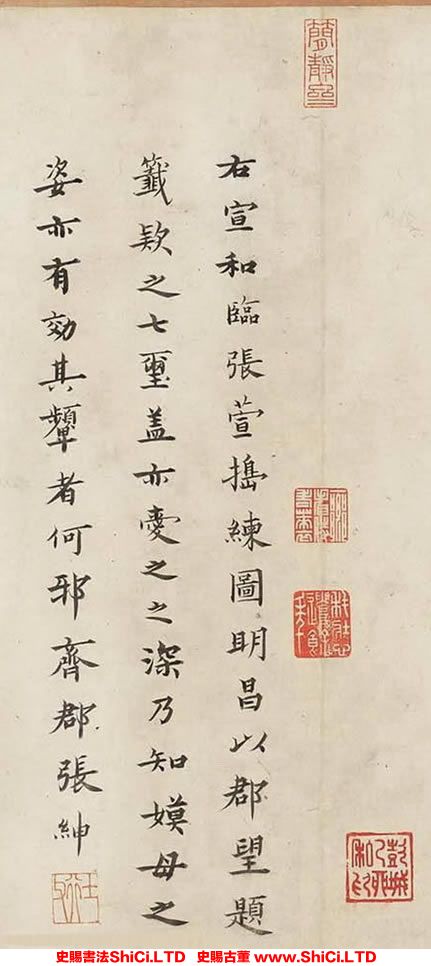 右宣和臨張萱搗練圖明昌以郡望題
籤欵之七璽盖亦愛之之深乃知嫫母之
姿亦有効其顰者何邪齊郡張紳
史賜書法ShiCi.LTD 史賜古董 www.ShiCi.LTD